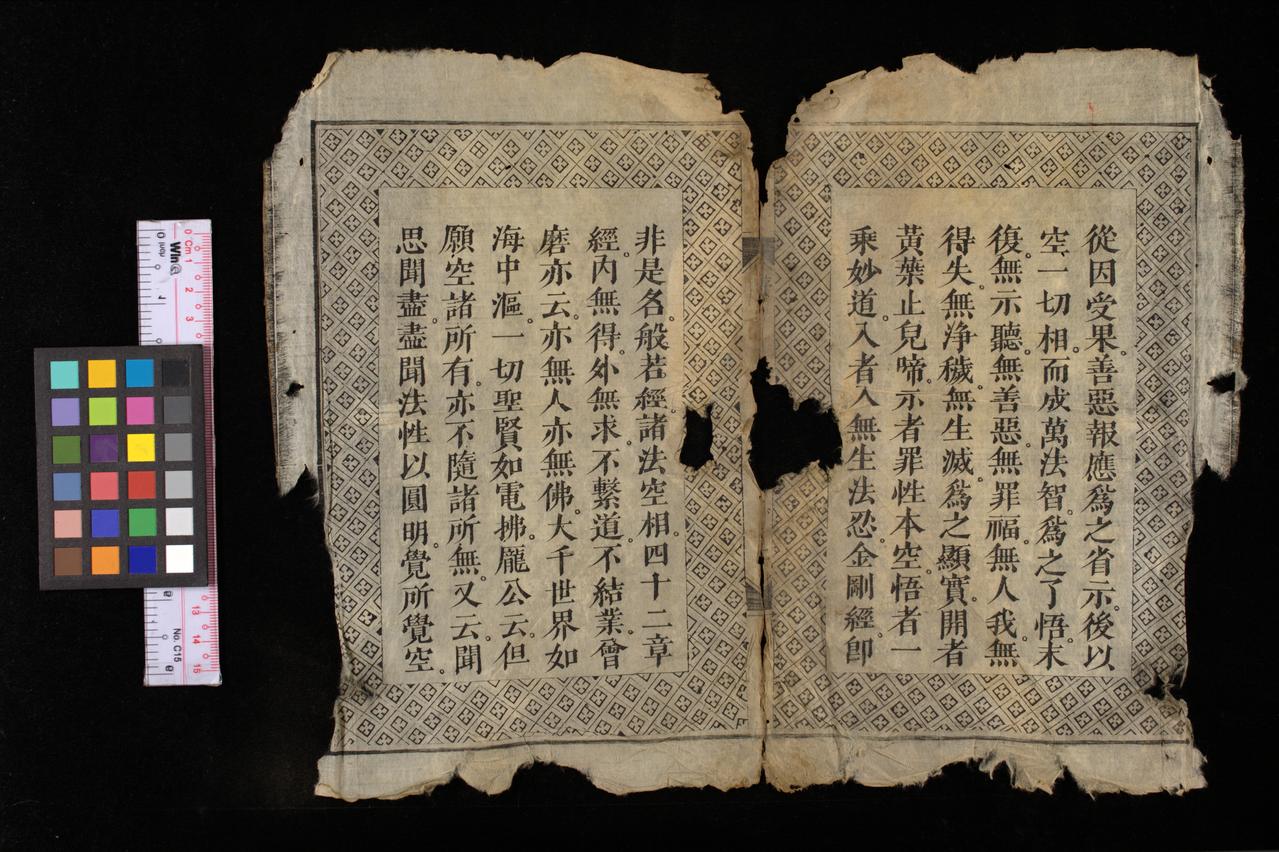 從因受果。善惡報應爲之省示。後以
空一切相。而成萬法智。爲之了悟。末
復。無示聽。無善惡。無罪福。無人我。無
得失。無淨穢。無生滅。爲之顯實。開者
黃葉止兒啼。示者罪性本空。悟者一
乘妙道。入者入無生法忍。金剛經。即
非是名。般若經。諸法空相。四十二章
經。內無得。外無求。不繫道。不結業。曾
磨亦云。亦無人亦無佛。大千世界如
海中漚。一切聖賢如電拂。龐公云。但
願空諸所有。亦不隨諸所無。又云。聞
思聞盡。盡聞法性以圓明。覺所覺空。
0 Cm 1
2
3
13
14
15
No. C15